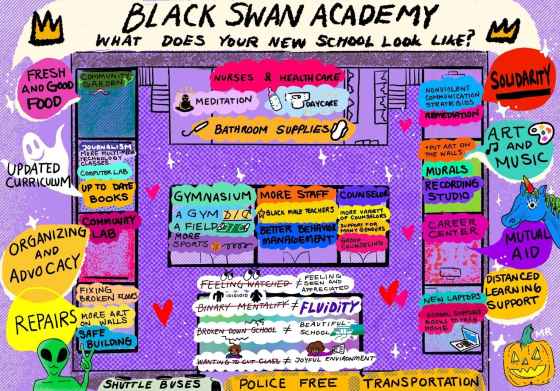 BLACK SWAN ACADEMY
WHAT DOES YOUR NEW SCHOOL LOOK LIKE?
FRESH
AND GOOD
FOOD
COMMUNITY
GARDEN
JOURNALISM
TECHNOLOGY
CLASSES
COMPUTER LAB
UP TO DATE
BOOKS
UPDATED
CURRICULUM
COMMUNITY
LAB
ORGANIZING
AND
ADVOCACY
FIXING
BROKEN
MORE ART
ON WALLS
SAFE
BUILDING
REPAIRS
NURSES & HEALTHCARE
MEDITATION
DAYCARE
BATHROOM SUPPLIES
GYMNASIUM
A GYM
A FIELD
MORE
SPORTS
MORE STAFF
BLACK MALE TEACHERS
BETTER BEHAVIOR
MANAGEMENT
COUNSELOR
MORE VARIETY
OF COUNSELORS
SUPPORT FOR
MANY GENDERS
GROUP
COUNSELING
FEELING WATCHED ≠ FEELING
SEEN AND
APPRECIATED
BINARY MENTALITY ≠ FLUIDITY
BROKEN DOWN SCHOOL ≠ BEAUTIFUL
SCHOOL
WANTING TO CUT CLASS ≠ JOYFUL ENVIRONMENT
NONVIOLENT
COMMUNICATION
STRATEGIES
REMEDIATION
SOLIDARITY
PUT ART ON
THE WALLS
MURALS
RECORDING
STUDIO
ART
AND
MUSIC
CAREER
CENTER
MUTUAL
AID
NEW LAPTOPS
HOME
DISTANCED
LEARNING
SUPPORT
SHUTTLE BUSES
POLICE FREE
TRANSPORTATION